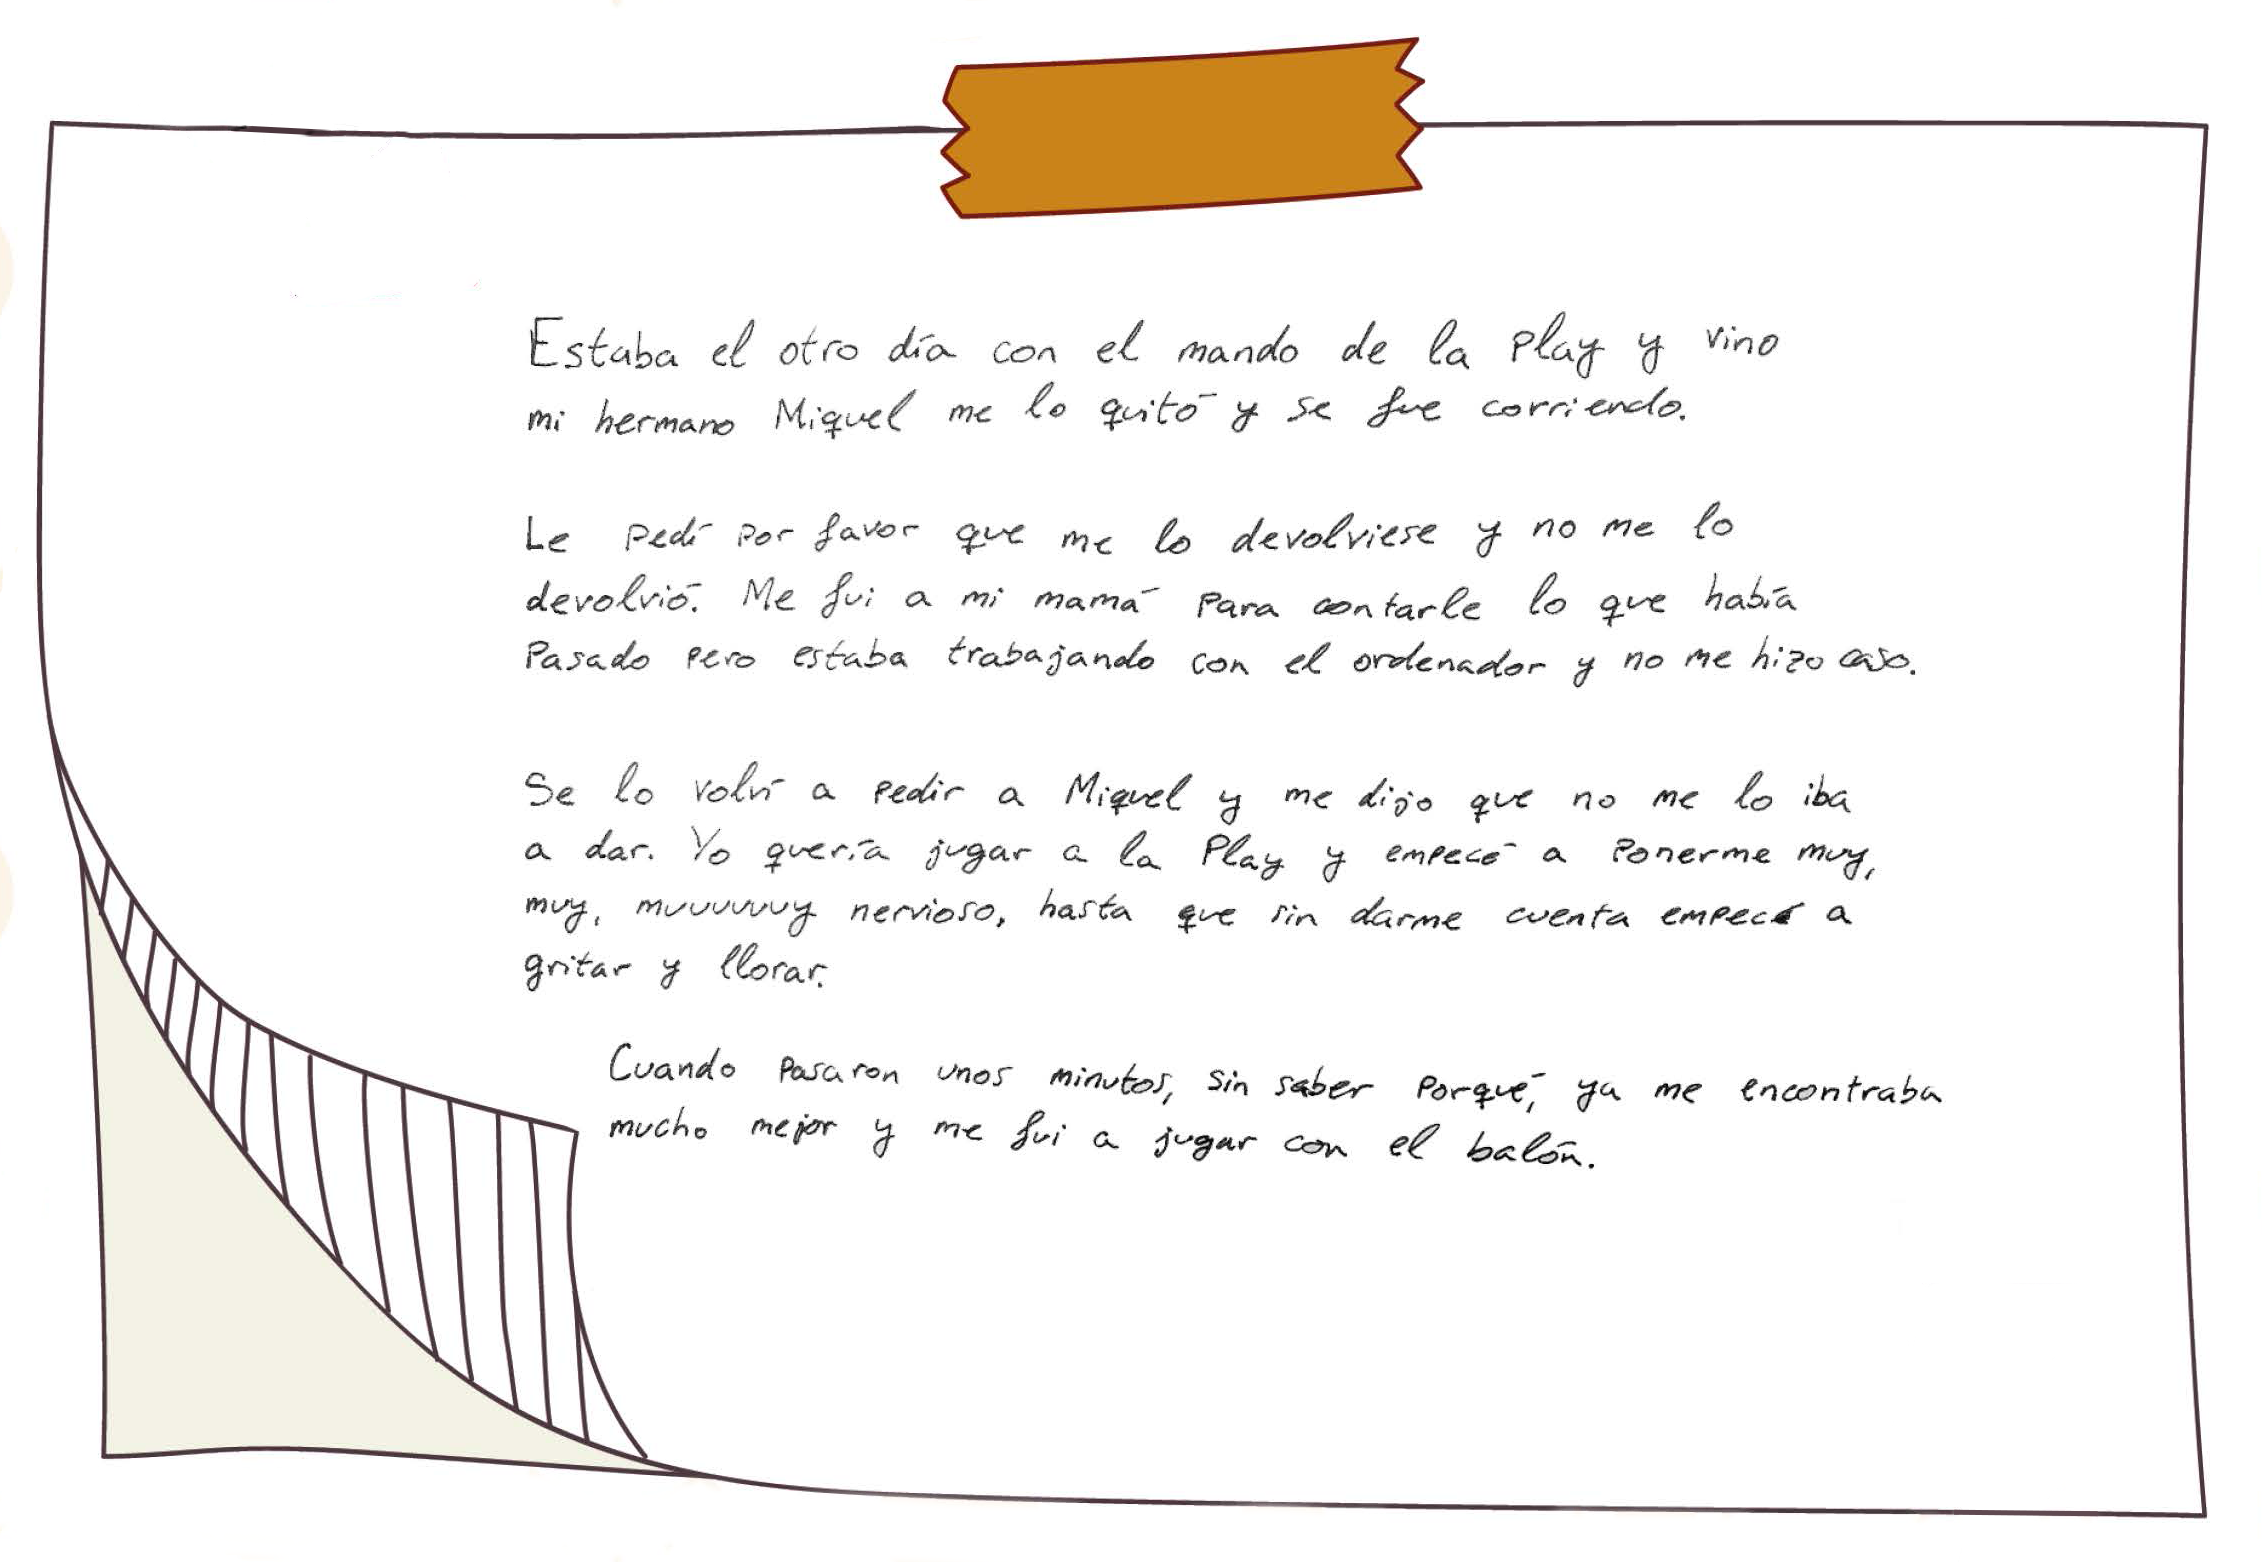 Estaba el otro día con el mando de la Play y vino
mi hermano Miquel me lo quitó y se fue corriendo.
Le pedí por favor que me lo devolviese y no me lo
devolvió. Me fui a mi mamá para contarle lo que había
Pasado pero estaba trabajando con el ordenador y no me hizo caso.
Se lo volví a pedir a Miquel y me dijo que no me lo iba
a dar. Yo quería jugar a la Play y empecé a ponerme muy,
muy, muuuuuuy nervioso, hasta que sin darme cuenta empecé a
gritar y llorar.
Cuando pasaron unos minutos, sin saber porqué, ya me encontraba
mucho mejor y me fui a jugar con el balón.